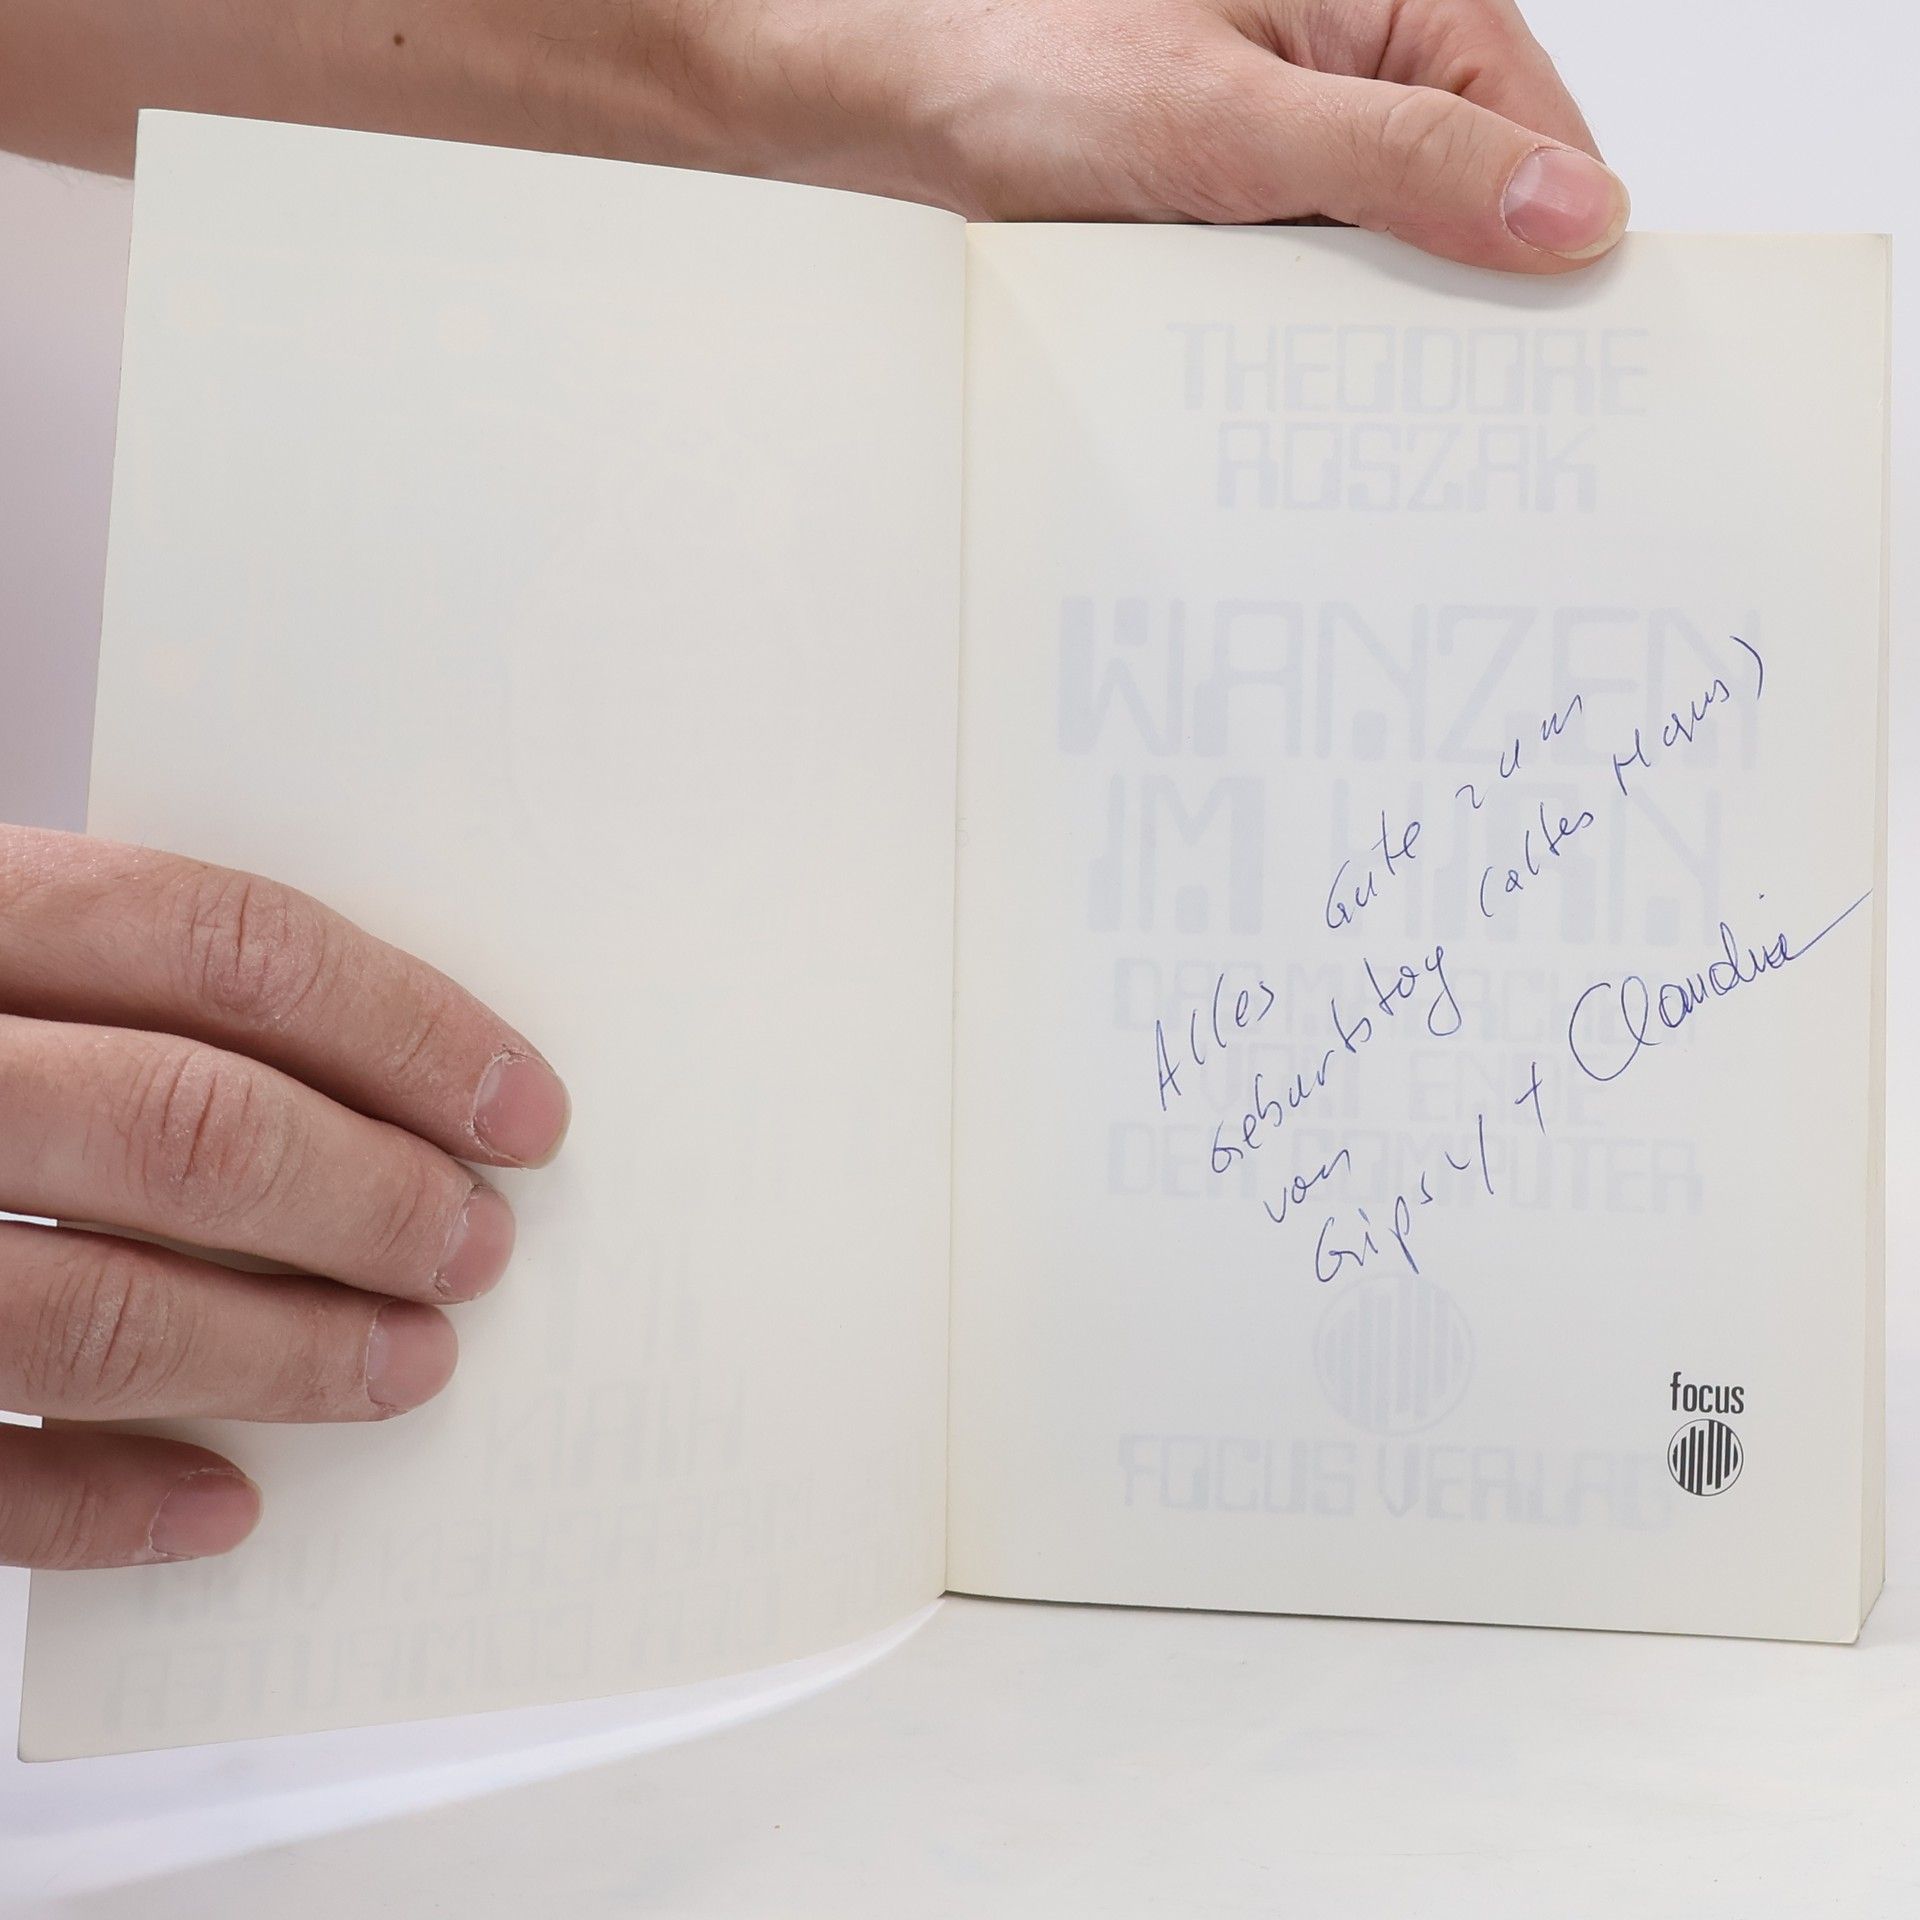 THEODORE
ROSZAK
WANZEN
IM HIRN
DAS MÄRCHEN
VOM ENDE
DER COMPUTER
Alles Gute zum
Geburtstag (altes Haus)
von
Gipsy + Claudia
focus
FOCUS VERLAG
HIRN
DER COMPUTER